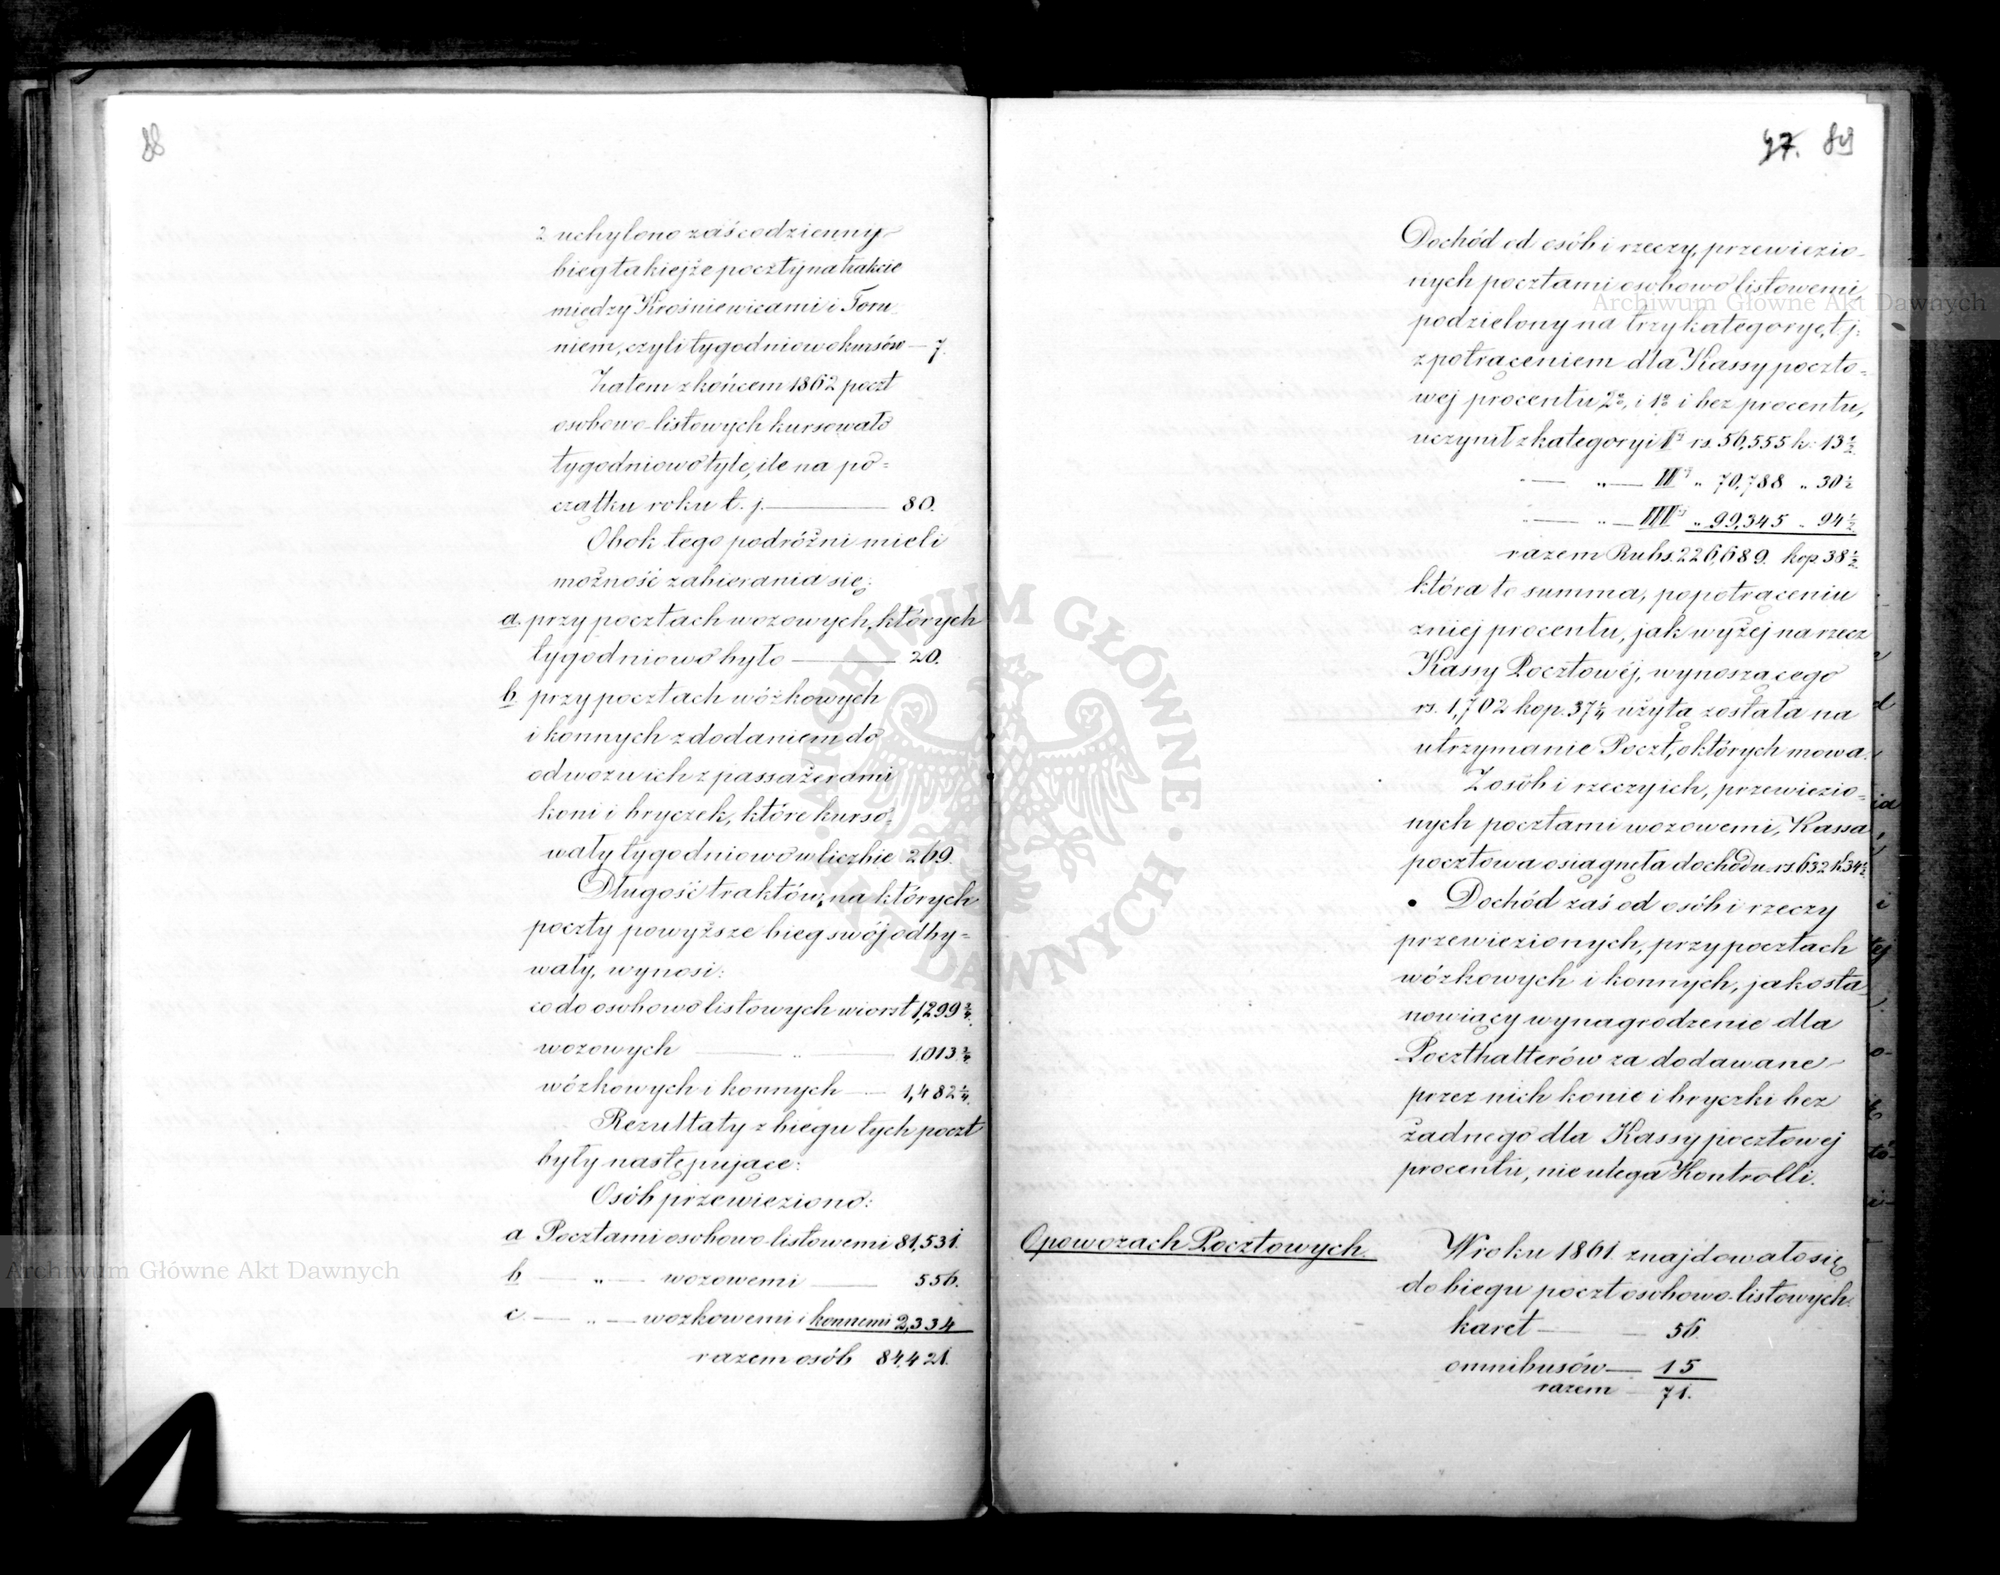 88
2 uchylono zaś codzienny
bieg takiejże poczty na trakcie
między Krośniewicami i Toru-
niem, czyli tygodniowo kursów — 7.
Zatem z końcem 1862 poczt
osobowo-listowych kursowało
tygodniowo tyle, ile na po=
czątku roku t. j. — 80.
Obok tego podróżni mieli
możność zabierania się:
a. przy pocztach wozowych, których
tygodniowo było — 20.
b. przy pocztach wózkowych
i konnych z dodaniem do
odwozu ich z passażerami
koni i bryczek, które kurso=
wały tygodniowo w liczbie 269.
Długość traktów, na których
poczty powyższe bieg swój odby=
wały, wynosi:
co do osobowo listowych wiorst 1,299 3/4.
wozowych — „ — 1,013 3/4
wózkowych i konnych — 1,482 1/4.
Rezultaty z biegu tych poczt
były następujące:
Osób przewieziono:
a Pocztami osobowo-listowemi 81,531.
b — „ — wozowemi — 556.
c. — „ — wozkowemi i konnemi 2,334
razem osób 84,421.
47. 89
Dochód od osób i rzeczy, przewiezio-
nych pocztami osobowo listowemi
podzielony na trzy kategorye, t. j:
z potrąceniem dla Kassy poczto=
wej procentu 2%, i 1% i bez procentu,
uczynił z kategoryi I rs. 56,555 k. 13 1/2.
— „ — II „ 70,788 „ 30 1/2
— „ — III „ 99,345 „ 94 1/2
razem Rubs. 226,689. kop. 38 1/2.
która to summa, po potrąceniu
z niej procentu, jak wyżej na rzecz
Kassy Pocztowéj, wynoszącego
rs. 1,702 kop. 37 1/4 użytą została na
utrzymanie Poczt, o których mowa.
Z osób i rzeczy ich, przewiezio=
nych pocztami wozowemi, Kassa
pocztowa osiągnęła dochodu rs 632 k 34 1/2.
Dochód zaś od osób i rzeczy
przewiezionych, przy pocztach
wózkowych i konnych, jako sta
nowiący wynagrodzenie dla
Poczthalterów za dodawane
przez nich konie i bryczki bez
żadnego dla Kassy pocztowej
procentu, nie ulega Kontrolli.
O powozach Pocztowych.
W roku 1861. znajdowało się
do biegu poczt osobowo-listowych.
karet — 56
omnibusów — 15
razem — 71.
Archiwum Główne Akt Dawnych
Archiwum Główne Akt Dawnych
ARCHIWUM GŁÓWNE · AKT DAWNYCH ·